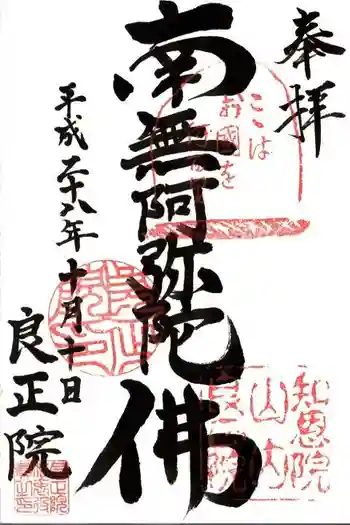 奉拝
南無阿弥陀佛
平成二十八年十月十日
良正院
ここは
お國を
知恩院
山内
良正院